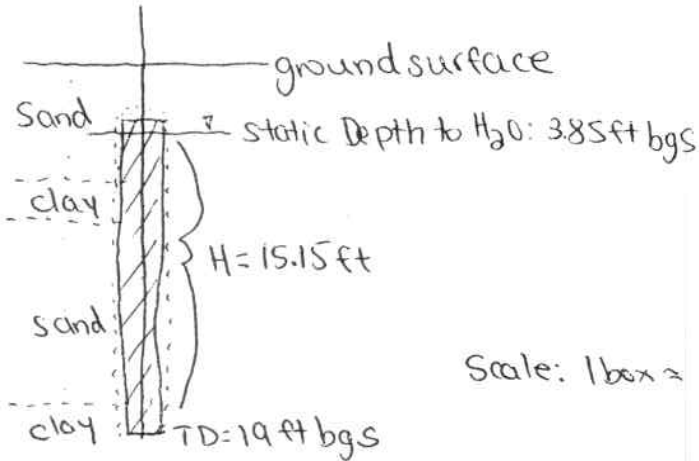 ground surface
Sand
static Depth to H₂O: 3.85ft bgs
clay
H = 15.15 ft
sand
Scale: 1box ≈
clay
TD=19 ft bgs